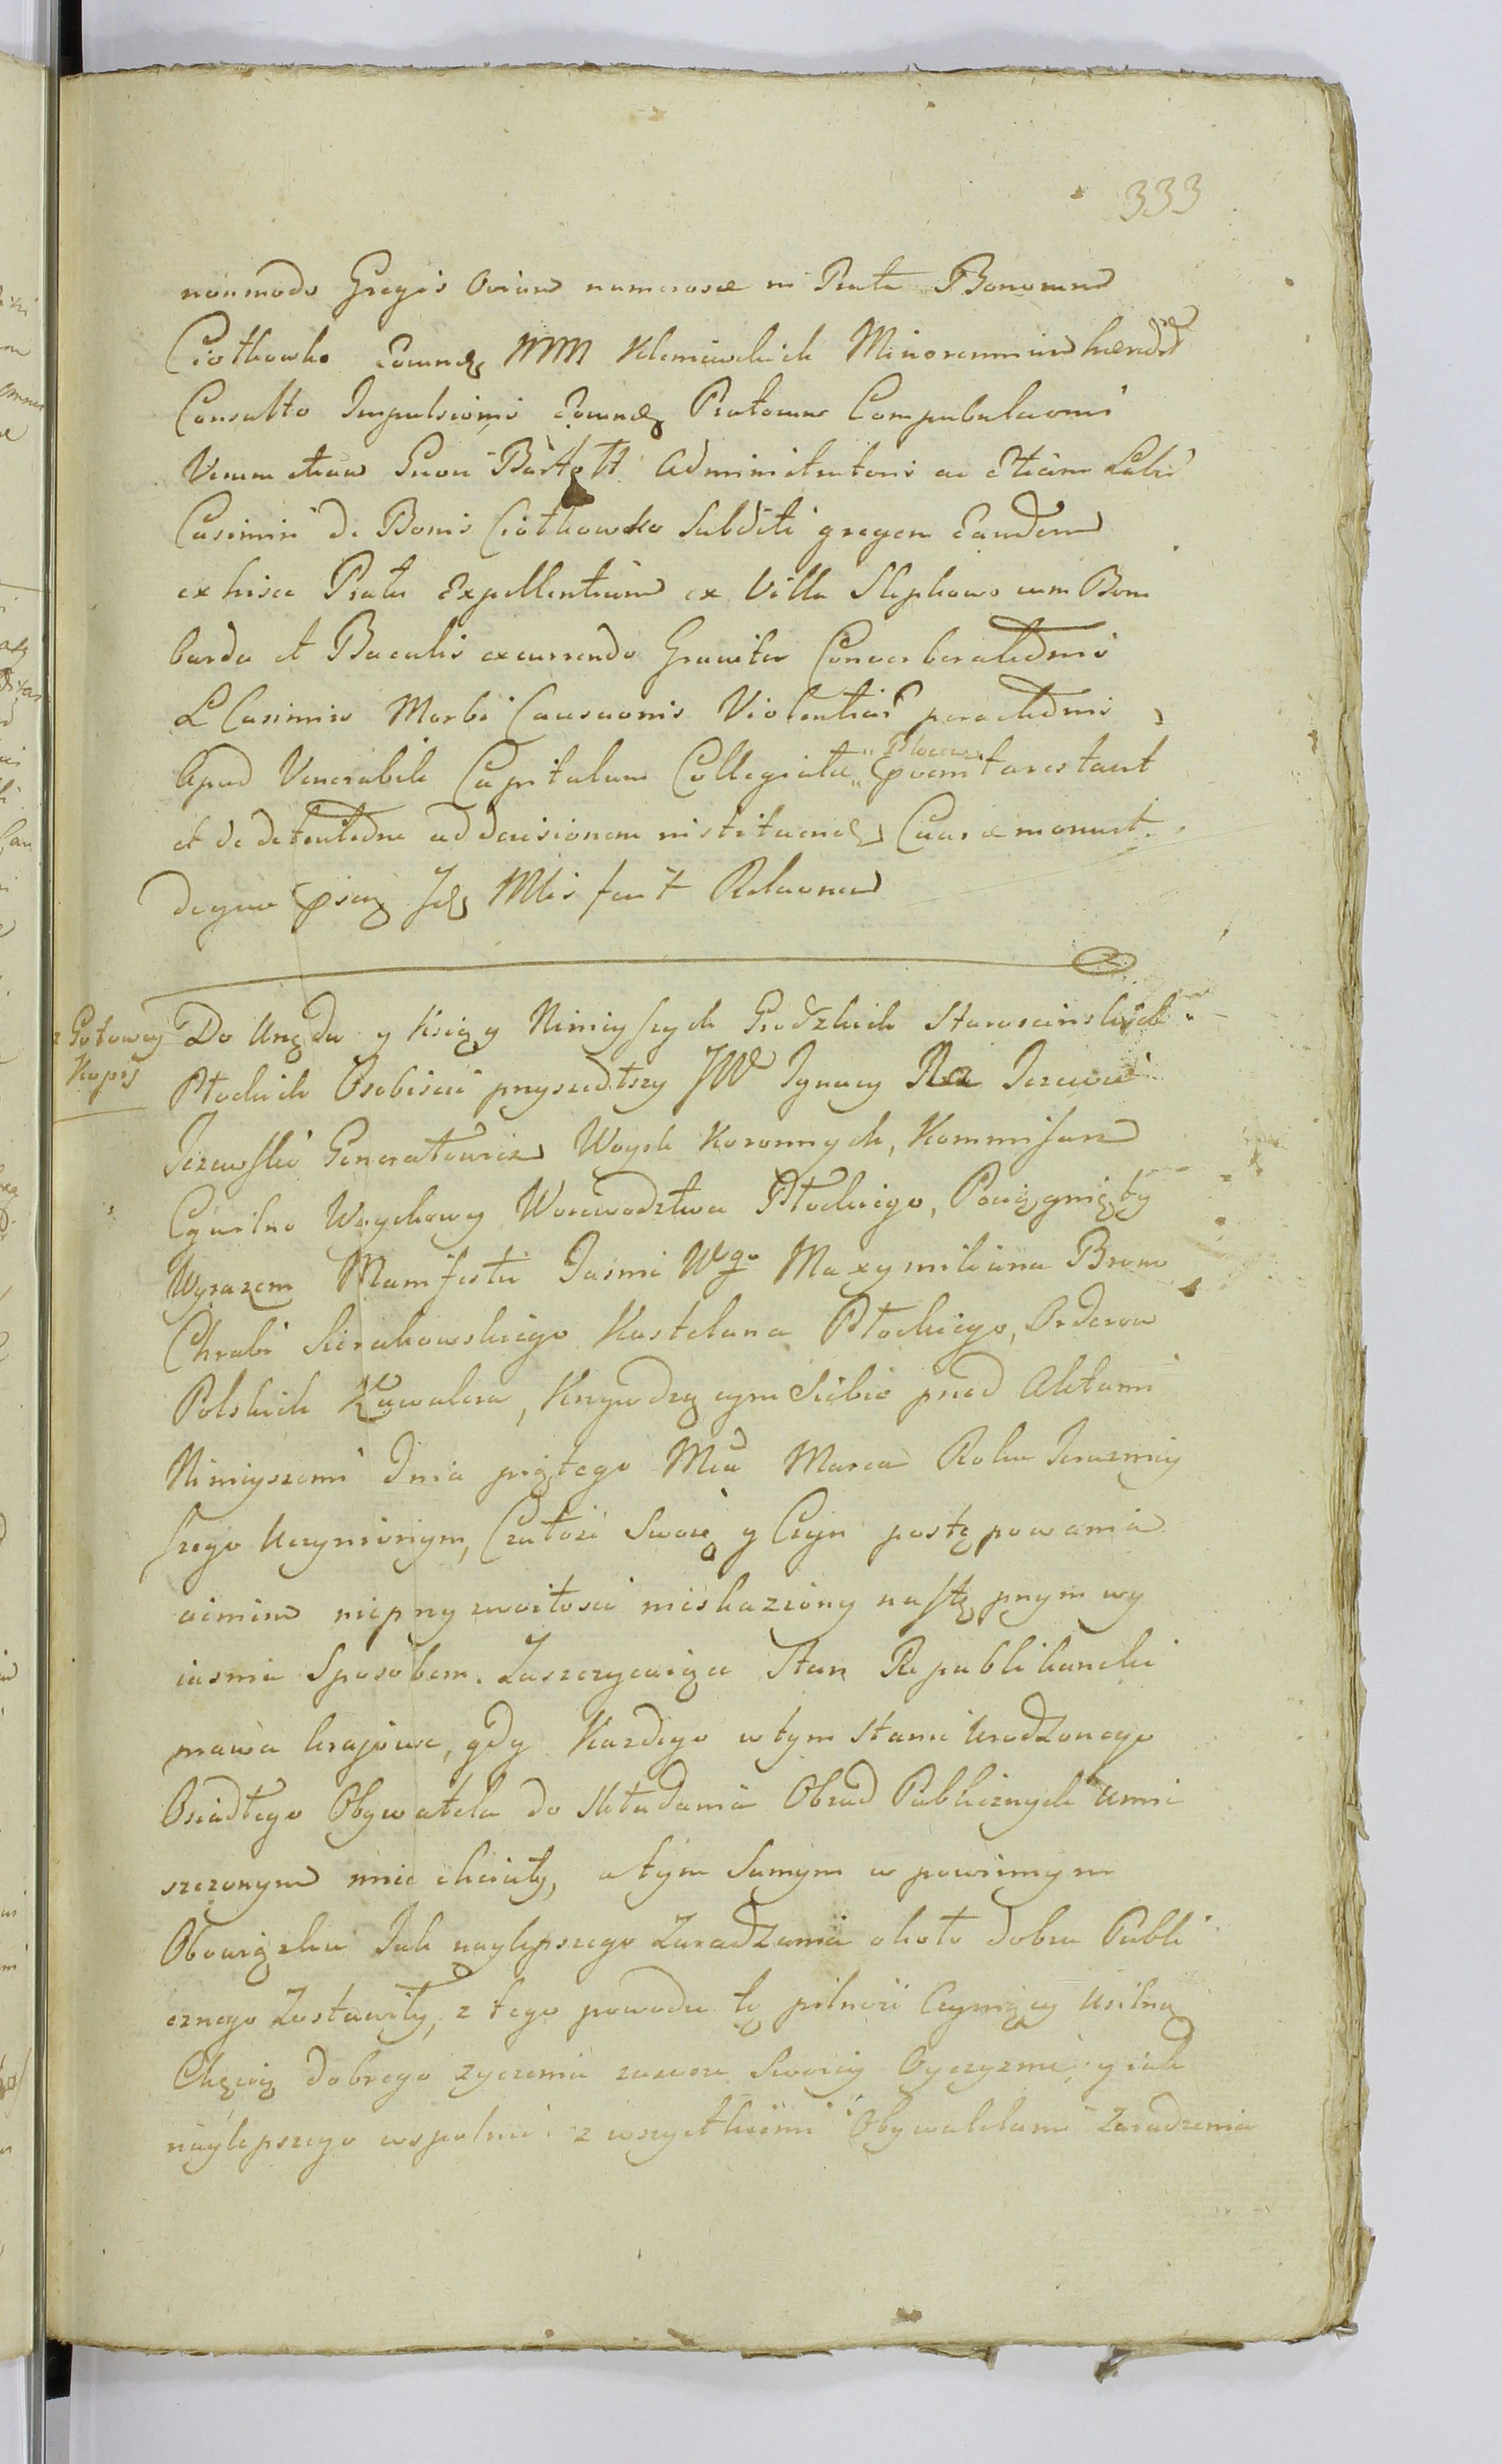 333
nonmodo Gregis Ovium numerosæ in Prata Bonorum
Ciołkowko Eorundę MM Kleniewskich Minorennium hæredd
Consulto Impulsionis Eorundę Pratorum Compabulaonis
Verum etiam Gnon Bartołt Administratoris ac Etiam Labi
Casimiri de Bonis Ciołkowko Subditi gregem Eandem
ex hisce Pratis Expellentium ex Villa Slepkowo cum Bom
barda et Baculis excurrendo Graviter Converberatednis
L Casimiro Morbi Causaonis Violentias peractednis
Apud Venerabile Capitulum Collegiatæ Plocen
et de detentedne ad decisionem instituendę Causæ manuit
deque Jdę Mtis fecit Relaonem
z Gotowey Kopij
Do Urzędu y Xsiąg Ninieyszych Grodzkich Starościńskich
Płockich Osobiście przyszedłszy JW Ignacy Jezewski
Jezewski Generałowicz Woysk Koronnych, Kommisarz
Cywilno Woyskowy Woiewodztwa Płockiego, Pociągnięty
Wyrazem Manifestu Jaśnie Wgo Maxymiliana Brona
Chrabi Sierakowskiego Kasztelana Płockiego, Orderow
Polskich Kawalera, Krzywdzącym Siebie przed Aktami
Ninieyszemi Dnia piątego Mca Marca Roku Terazniey
szego Uczynionym, Czułość Swoię y Czyn postępowania
nieprzyzwoitości nieskaziony następnym wy
iaśnia Sposobem. Zaszczycaiące Stan Republikancki
prawa kraiowe, gdy Kazdego w tym Stanie Urodzonego
Osiadłego Obywatela do Składania Obrad Publicznych Umie
szczonym mieć chciały, a tym Samym w powinnym
Obowiązku Jak naylepszego Zaradzania około dobra Publi
cznego Zostawiły, z tego powodu tę pilność Czyniący Usilną
Chęcią dobrego zyczenia zawsze Swoiey Oyczyznie, y iak
naylepszego wspolnie z wszystkiemi Obywatelami Zaradzenia